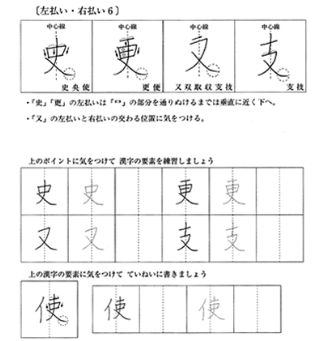 〔左払い・右払い６〕
中心線 中心線 中心線 中心線
史 更 又 支
史央使 更便 又双取収支技 支技
・「史」「更」の左払いは「 」の部分を通りぬけるまでは垂直に近く下へ。
・「又」の左払いと右払いの交わる位置に気をつける。
上のポイントに気をつけて 漢字の要素を練習しましょう
史 史 更 更
又 又 支 支
上の漢字の要素に気をつけて ていねいに書きましょう
使 使 使